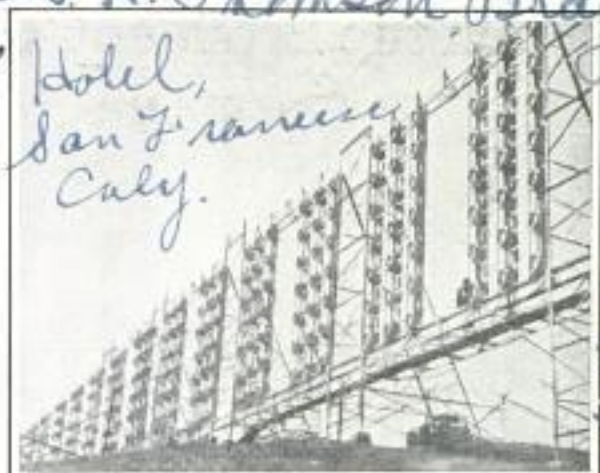 Hotel,
San Francisco
Caly.